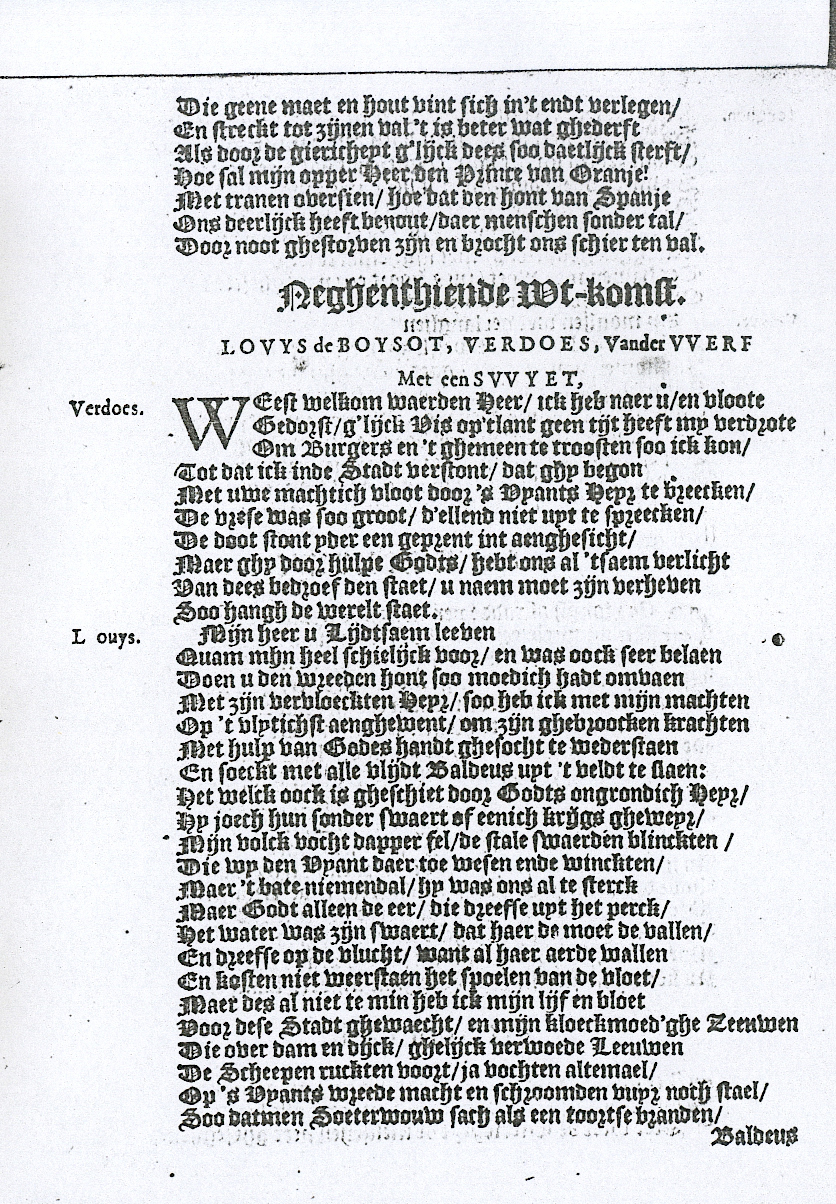 Die geene maet en hout vint sich in't endt verlegen/
En streckt tot zijnen val 't is beter wat ghederft
Als door de giericheyt g'lijck dees soo daetlijck sterft/
Hoe sal mijn opper Heer den Prince van Oranje!
Met tranen oversien/ hoe dat den hont van Spanje
Ons deerlijck heeft benout/daer menschen sonder tal/
Door noot ghestorven zijn en brocht ons schier ten val.
Neghenthiende Wt-komst.
LOVYS de BOYSOT, VERDOES, Vander VVERF
Met een SVVYET,
Verdoes. WEest welkom waerden Heer/ ick heb naer u/en vloote
Gedorst/g'lijck Vis op't lant geen tijt heeft my verdrote
Om Burgers en 't ghemeen te troosten soo ick kon/
Tot dat ick inde Stadt verstont/ dat ghy begon
Met uwe machtich vloot door 's Vyants Heyr te breecken/
De vrese was soo groot/ d'ellend niet uyt te spreecken/
De doot stont yder een geprent int aenghesicht/
Maer ghy door hulpe Godts/ hebt ons al 'tsaem verlicht
Van dees bedroef den staet/ u naem moet zijn verheven
Soo hangh de werelt staet.
L ouys. Mijn heer u Lijdtsaem leeven
Quam mhn heel schielijck voor/ en was oock seer belaen
Doen u den wreeden hont soo moedich hadt omvaen
Met zijn vervloeckten Heyr/ soo heb ick met mijn machten
Op 't vlytichst aenghewent/ om zijn ghebroocken krachten
Met hulp van Godes handt ghesocht te wederstaen
En soeckt met alle vlijdt Baldeus uyt 't veldt te slaen:
Het welck oock is gheschiet door Godts ongrondich Heyr/
Hy joech hun sonder swaert of eenich krijgs gheweyr/
Mijn volck vocht dapper fel/de stale swaerden blinckten /
Die wy den Vyant daer toe wesen ende winckten/
Maer 't bate niemendal/ hy was ons al te sterck
Maer Godt alleen de eer/ die dreefse uyt het perck/
Het water was zijn swaert/ dat haer de moet de vallen/
En dreefse op de vlucht/ want al haer aerde wallen
En kosten niet weerstaen het spoelen van de vloet/
Maer des al niet te min heb ick mijn lijf en bloet
Voor dese Stadt ghewaecht/ en mijn kloeckmoed'ghe Zeeuwen
Die over dam en dijck/ ghelijck verwoede Leeuwen
De Scheepen ruckten voort/ja vochten altemael/
Op 's Vyants wreede macht en schroomden vuyr noch stael/
Soo datmen Soeterwouw sach als een toortse branden/
Baldeus